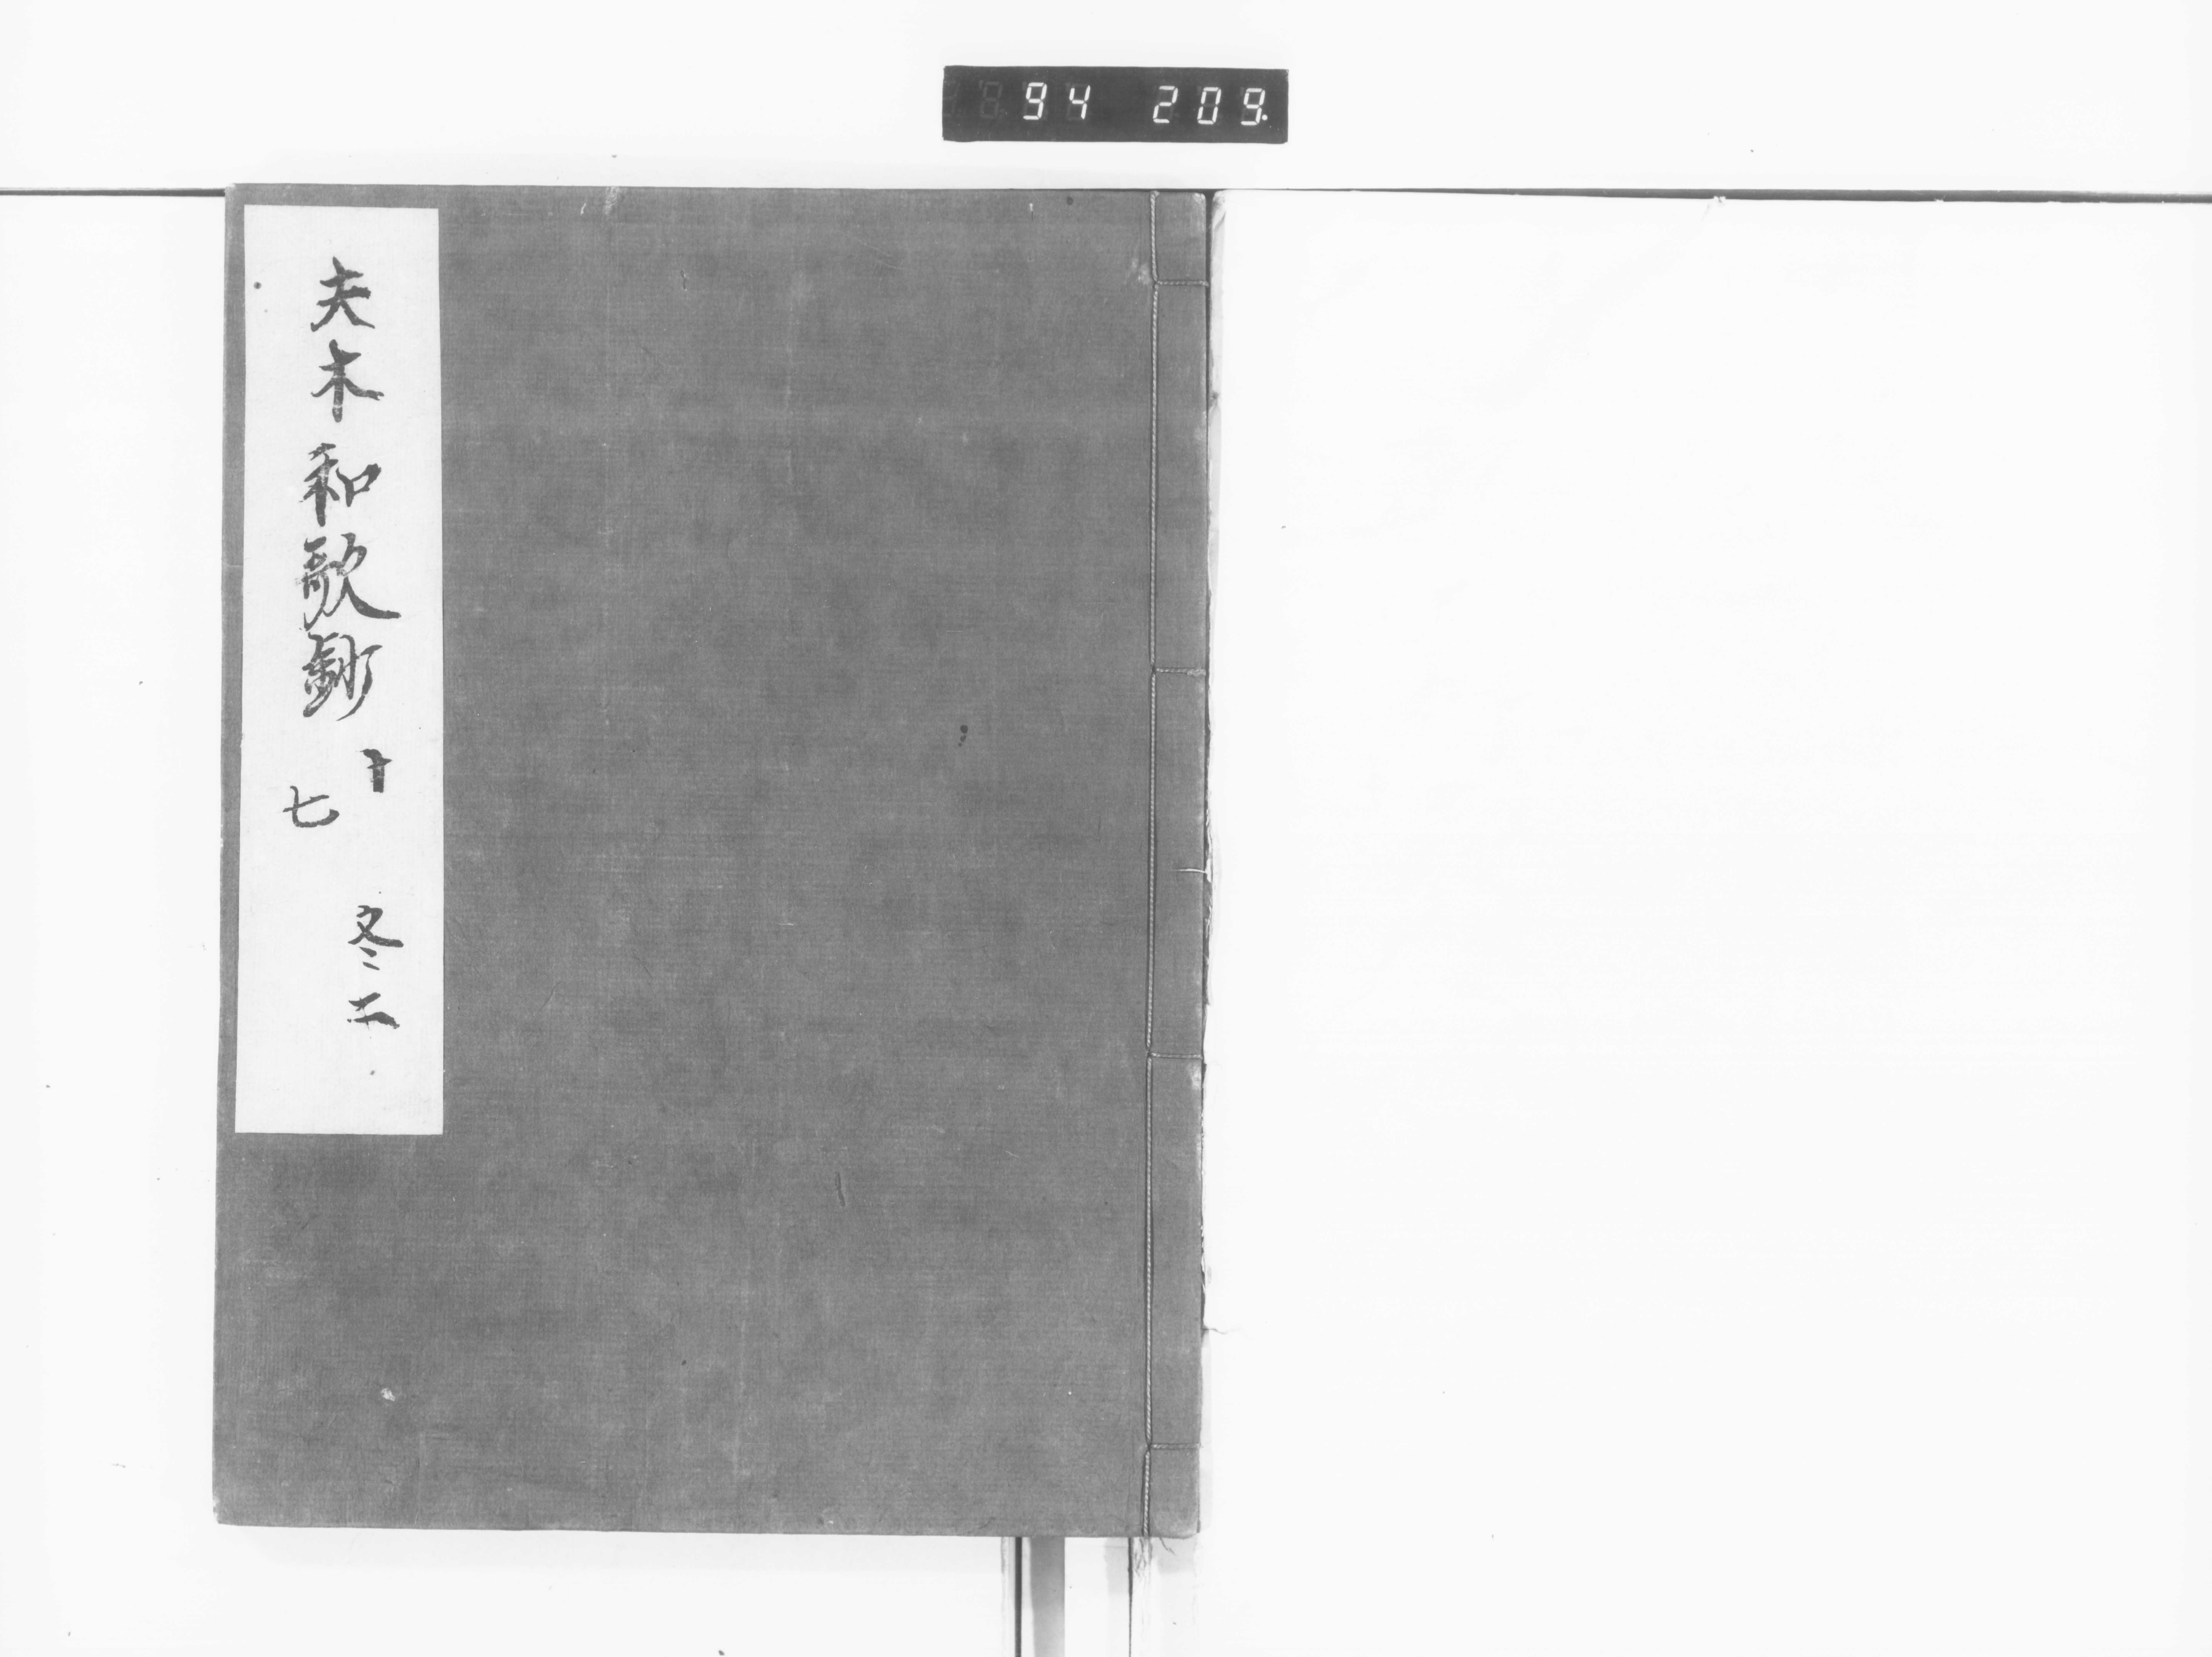 94 209.
夫木和歌鈔 十七 冬二